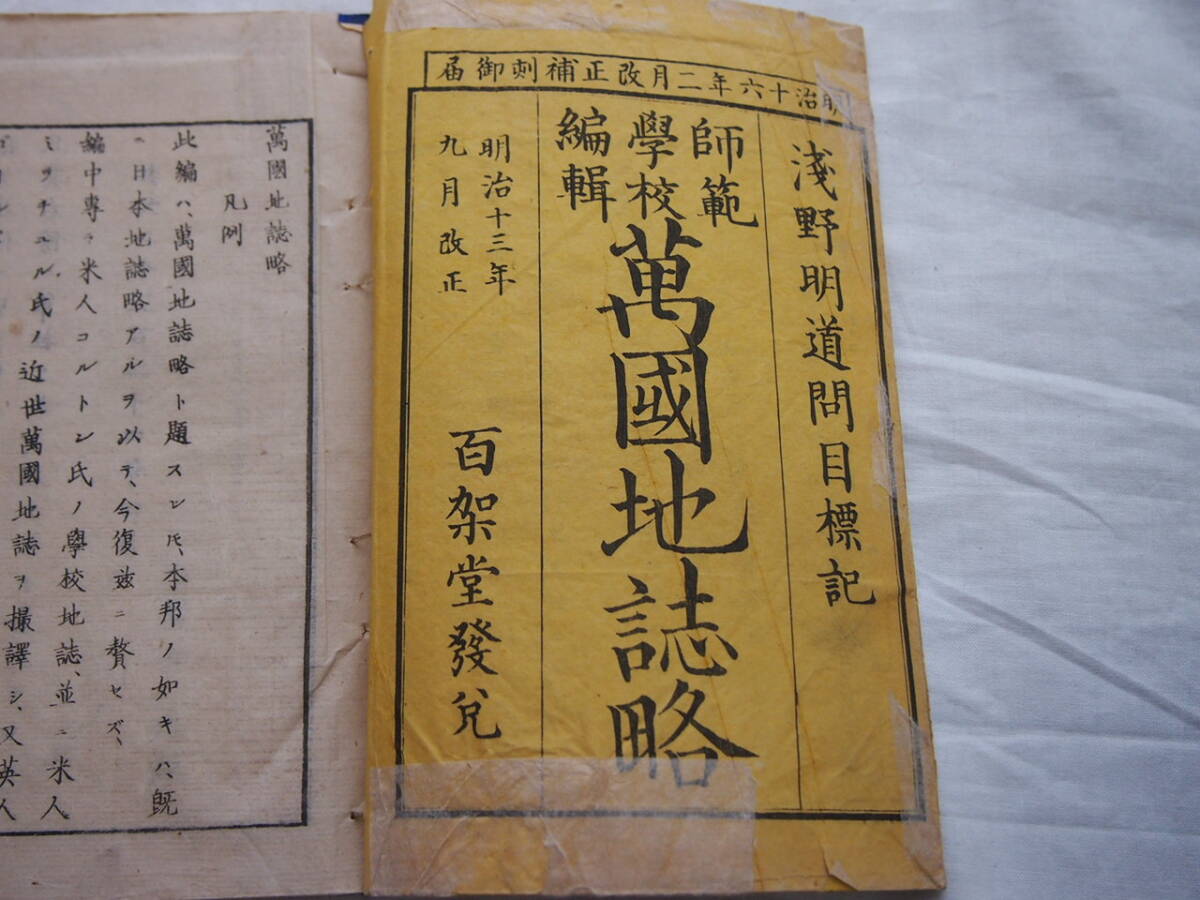 明治十六年二月改正補刻御届
淺野明道問目標記
師範
學校
編輯
萬國地誌略
明治十三年
九月改正
百架堂發兌
萬國地誌略
凡例
此編ハ、萬國地誌略ト題スレ𪜈、本邦ノ如キハ、既
ニ日本地誌略アルヲ以テ、今復玆ニ贅セズ、
編中專ラ米人コルトン氏ノ學校地誌、並ニ米人
ミッチェル氏ノ近世萬國地誌ヲ撮譯シ、又英人